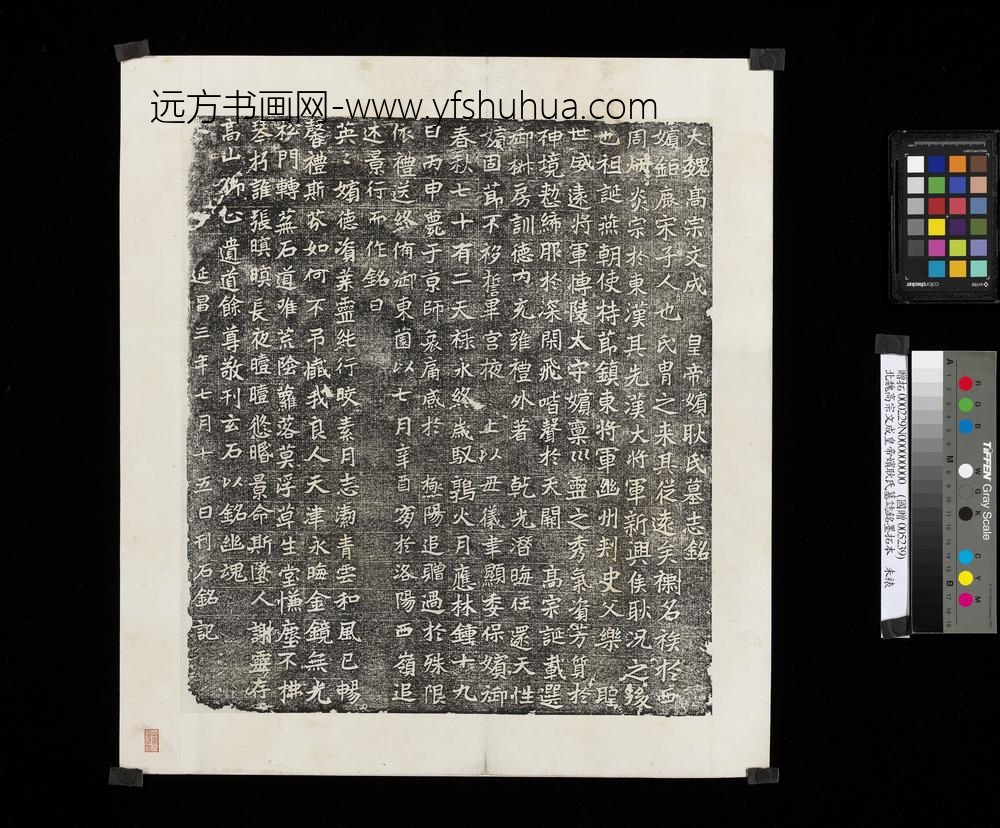 远方书画网-www.yfshuhua.com
大魏高宗文成 皇帝嬪耿氏墓志銘
嬪鉅鹿宋子人也氏胄之来其從遠矣禂名禩於西
周炳炎宗於東漢其先漢大將軍新興侯耿况之後
也祖誕燕朝使持節鎮東將軍幽州刺史父樂 聖
世威遠將軍博陵太守嬪禀巛靈之秀氣資芳質於
神境懃締服於深閑飛喈聲於天闕 高宗誕載選
御椒房訓德内充雍禮外著 乾光潛晦任還天性
嬪固節不移誓畢宫掖 上以毋儀聿顯委保嬪御
春秋七十有二天禄永終歲馭鶉火月應林鍾十九
日丙申薨于京師哀屬感於 極陽追贈過於殊限
依禮送終備御東園以七月辛酉窆於洛陽西嶺追
述景行而作銘曰
英英嬪德資業靈純行皎素月志瀏青雲和風已暢
馨禮斯芬如何不吊懺我良人天津永晦金鏡無光
松門轉蕪石道唯荒陰蘿落莫浮草生堂慊塵不拂
琴於誰張暝暝長夜曀曀悠昏景命斯墜人謝靈存
高山仰止遺道餘尊敬刊玄石以銘幽魂
延昌三年七月十五日刊石銘記
贈拓 000229N000000000 (國贈 005239)
北魏高宗文成皇帝嬪耿氏墓誌銘墨拓本 未裱
colorchecker
x-rite
TIFFEN Gray Scale
R G B W G K C Y M
A 1 2 3 4 5 6 M 8 9 10 11 12 13 14 15 B 17 18 19